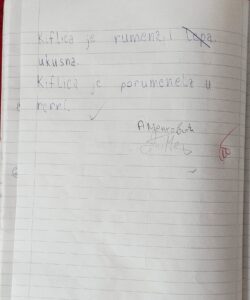 Kiflica je rumena i lepa,
ukusna.
Kiflica je porumenela u
rerni.